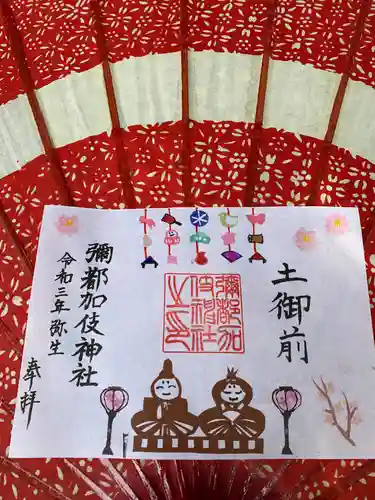 土御前
彌都加伎神社之印
彌都加伎神社
令和三年弥生
奉拝